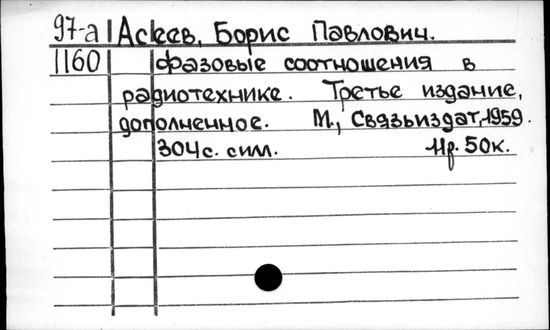 97-а Асеев, Борис Павлович.
1160 Фазовые соотношения в
радиотехнике. Третье издание,
дополненное. М., Связьиздат, 1959.
304с. силл. 11р. 50к.